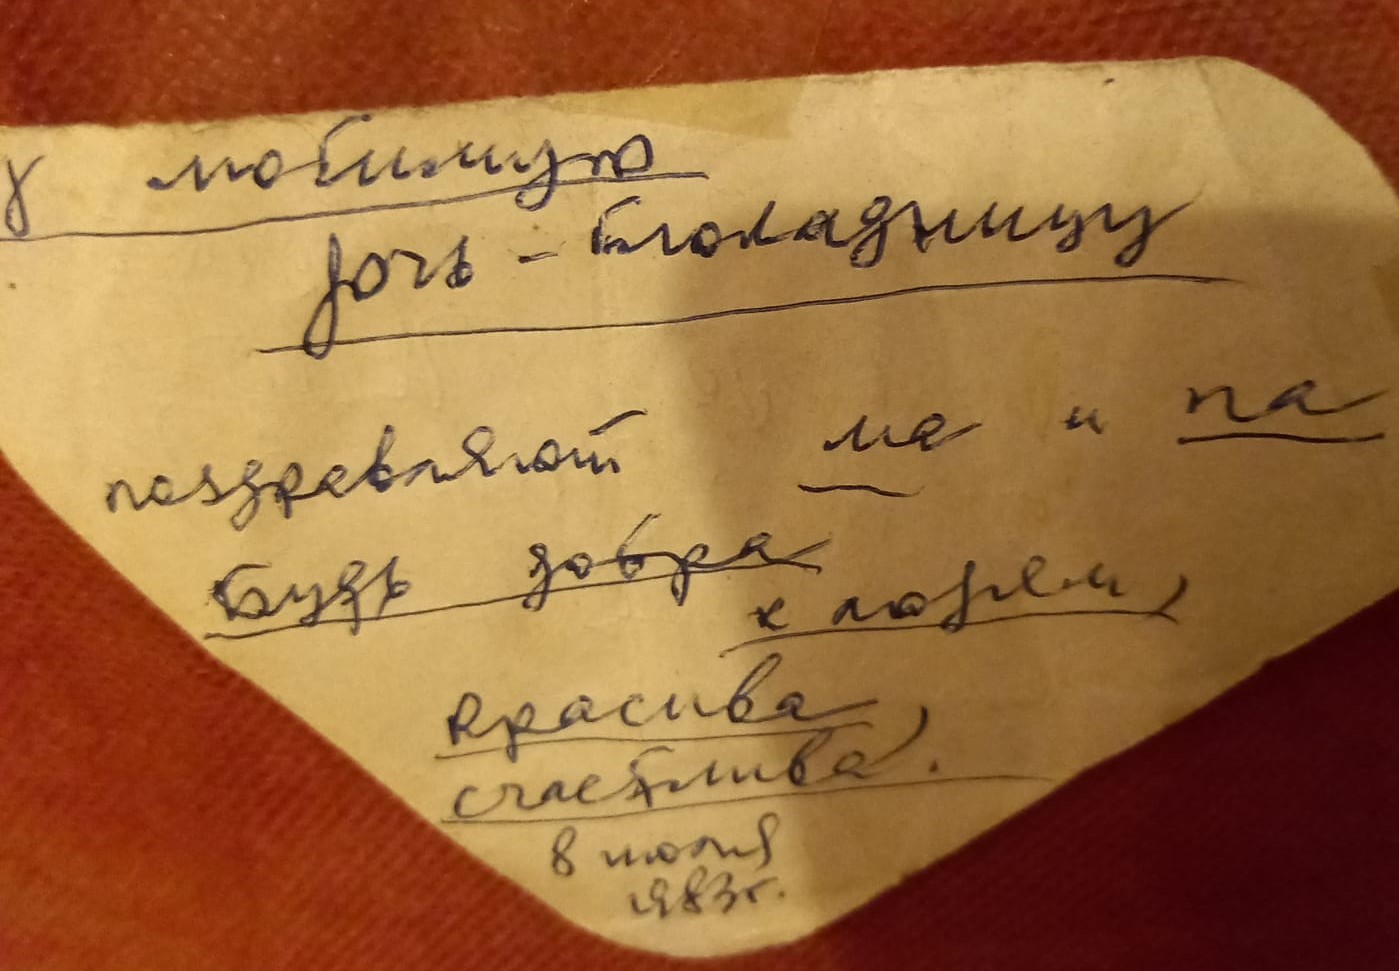 у любимую
дочь - блокадницу
поздравляют ма и па
Будь добра
к людям,
красива,
счастлива.
8 июля
1983г.